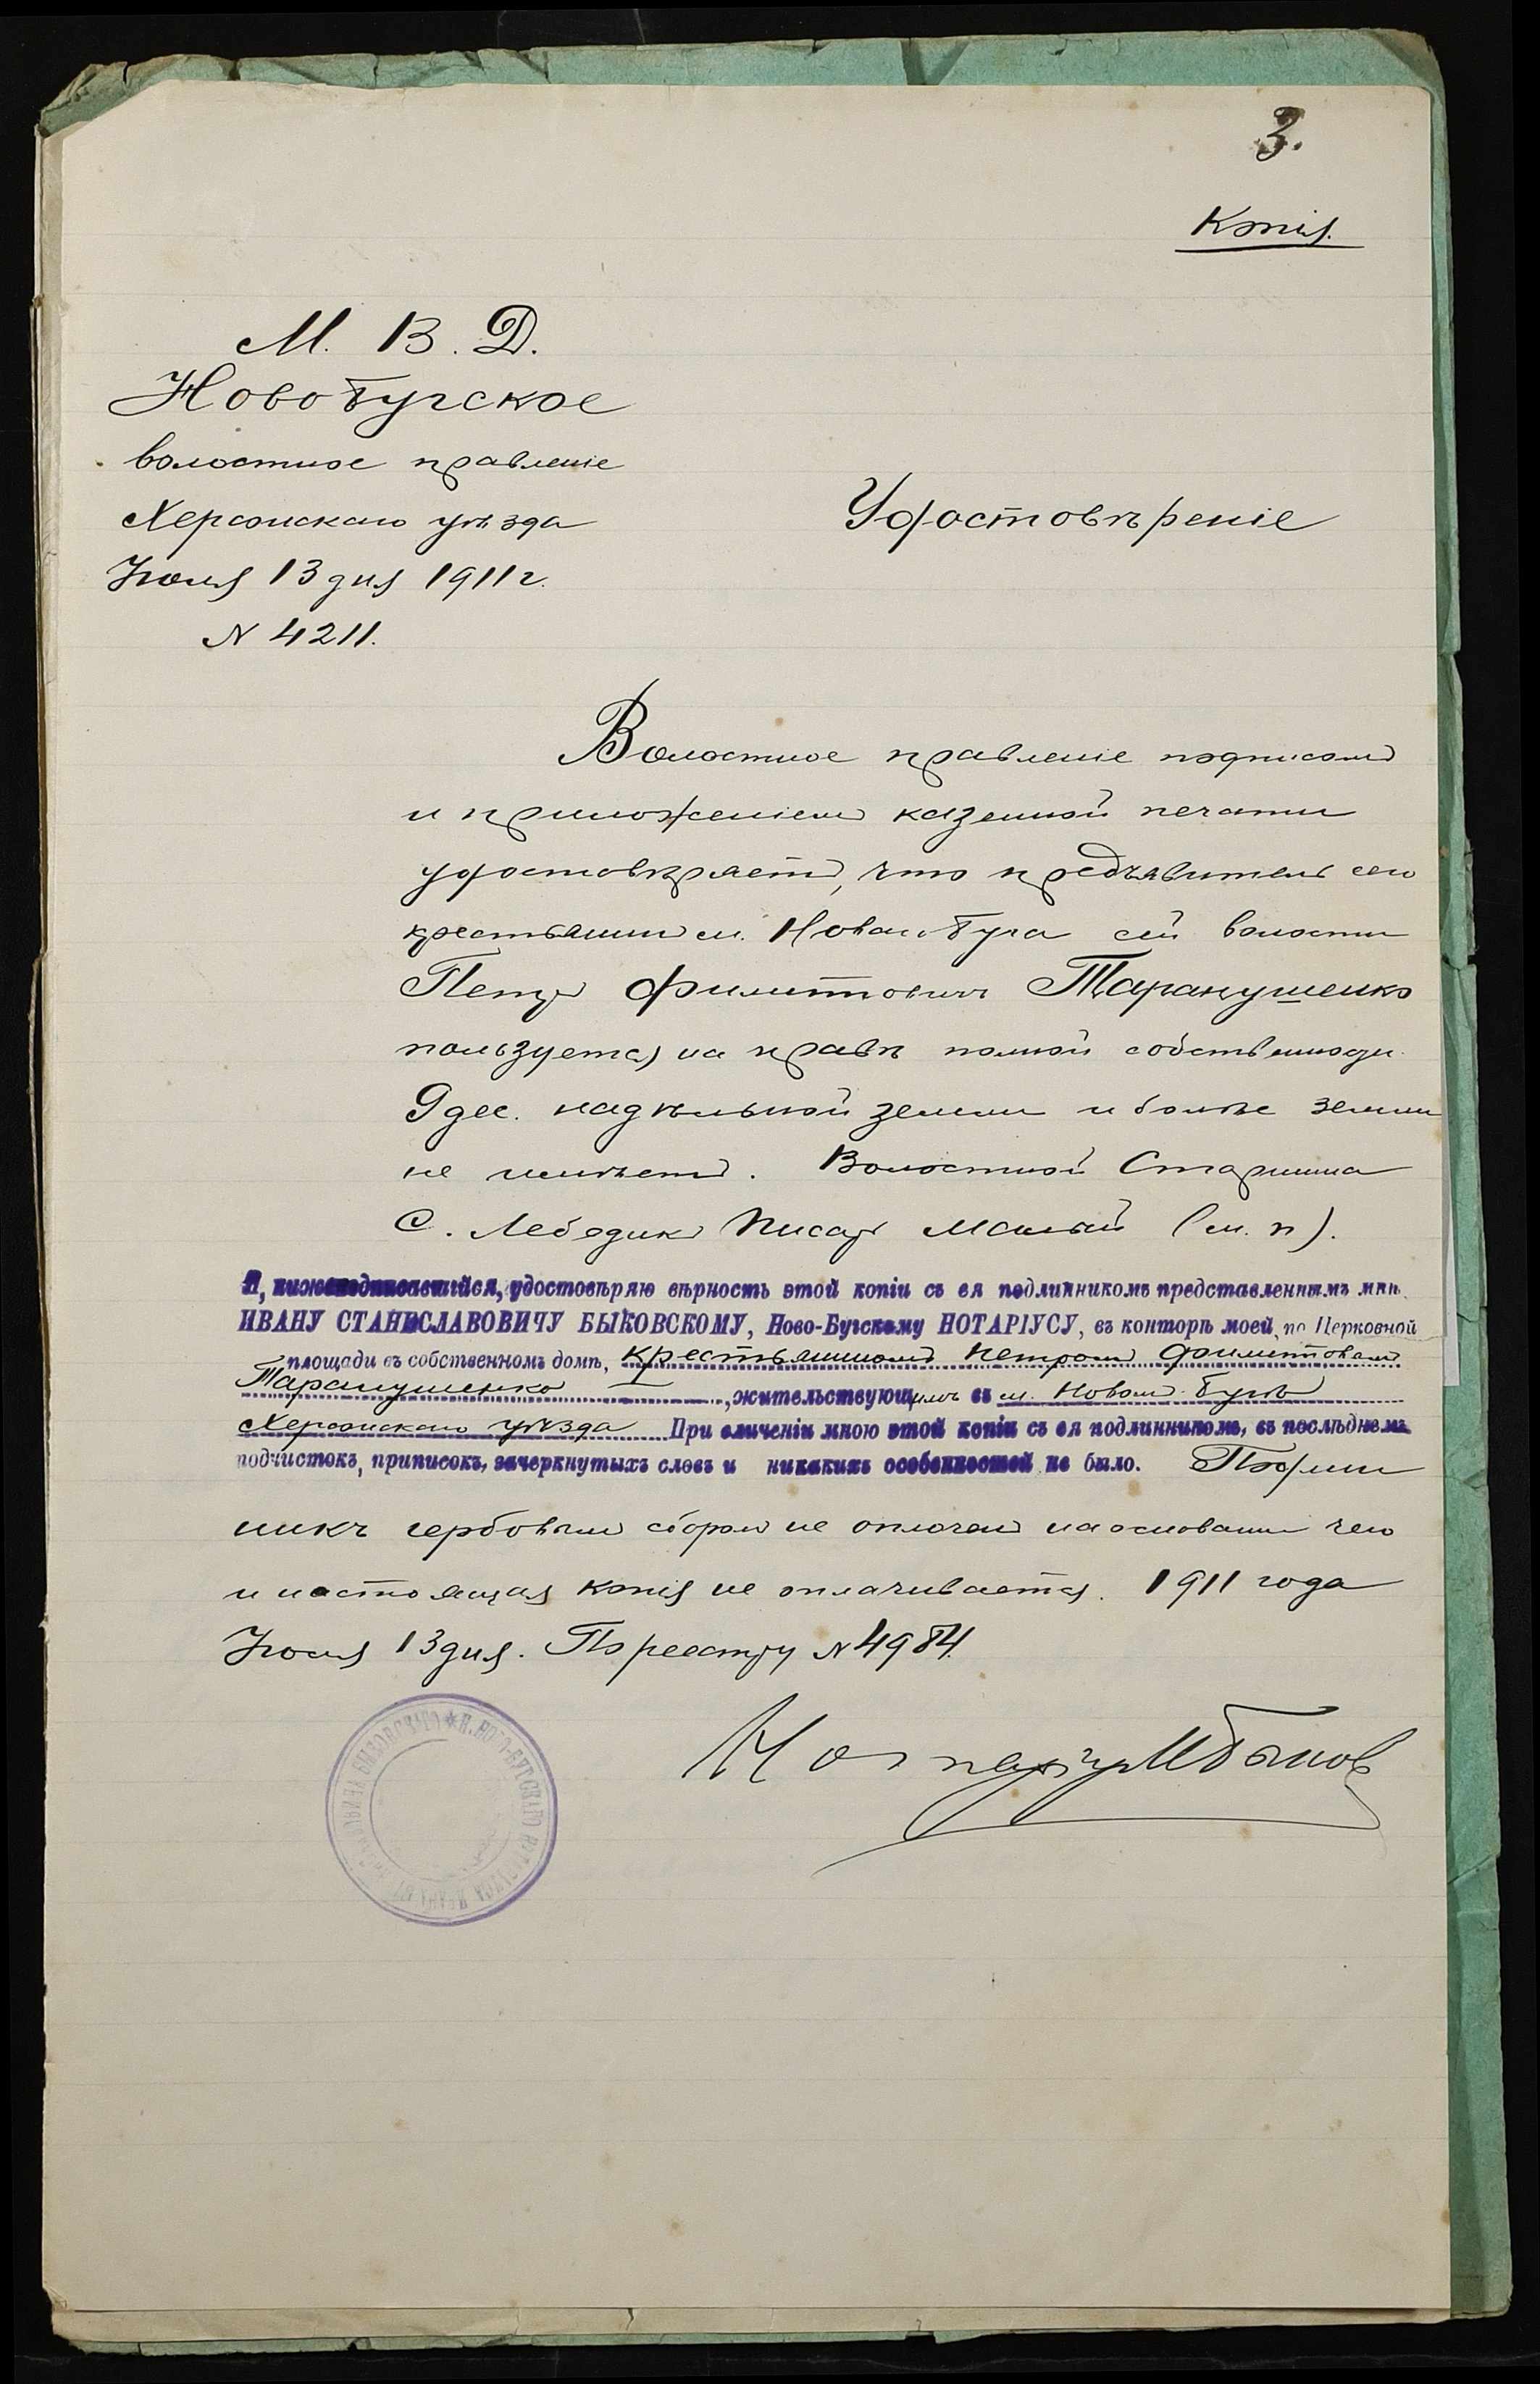 3.
Копія.
М. В. Д.
Новобугское
волостное правленіе
Херсонскаго уѣзда
Іюля 13 дня 1911 г.
N 4211.
Удостовѣреніе
Волостное правленіе подписомъ
и приложеніемъ казенной печати
удостовѣряетъ, что предъявитель сего
крестьянинъ м. Новаго Буга сей волости
Петръ Филиповичъ Таранушенко
пользуется на правѣ полной собственности
9 дес. надѣльной земли и болѣе земли
не имѣетъ. Волостной Старшина
С. Лебедикъ Писарь Малый (м. п).
Я, нижеподписавшійся, удостовѣряю вѣрность этой копіи съ ея подлинникомъ представленнымъ мнѣ
ИВАНУ СТАНИСЛАВОВИЧУ БЫКОВСКОМУ, Ново-Бугскому НОТАРІУСУ, въ конторѣ моей, по Церковной
площади въ собственномъ домѣ, крестьяниномъ Петромъ Филиповымъ
Таранушенко, жительствующимъ въ м. Новомъ Бугѣ
Херсонскаго уѣзда При сличеніи мною этой копіи съ ея подлинникомъ, въ послѣднемъ
подчистокъ, приписокъ, зачеркнутыхъ словъ и никакихъ особенностей не было. Подлин
никъ гербовымъ сборомъ не оплоченъ на основаніи чего
и настоящая копія не оплачивается. 1911 года
Іюля 13 дня. По реестру N 4984.
Нотаріусъ ИБыков